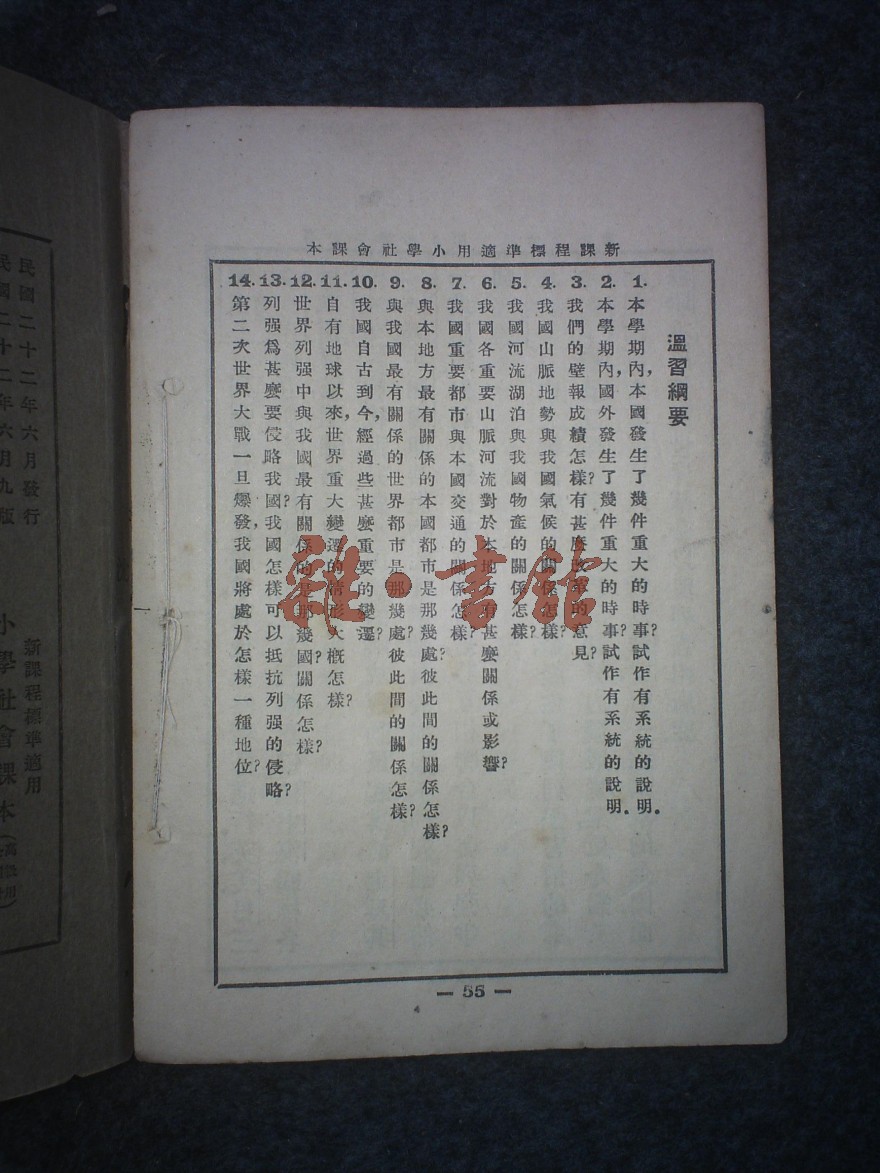 新課程標準適用小學社會課本
溫習綱要
1. 本學期內，本國發生了幾件重大的時事？試作有系統的說明．
2. 本學期內，國外發生了幾件重大的時事？試作有系統的說明．
3. 我們的壁報成績怎樣？有甚麼改革的意見？
4. 我國山脈地勢與我國氣候的關係怎樣？
5. 我國河流湖泊與我國物產的關係怎樣？
6. 我國各重要山脈河流對於本地方有甚麼關係或影響？
7. 我國重要都市與本國交通的關係怎樣？
8. 與本地方最有關係的本國都市是那幾處？彼此間的關係怎樣？
9. 與我國最有關係的世界都市是那幾處？彼此間的關係怎樣？
10. 我國自古到今，經過些甚麼重要的變遷？
11. 自有地球以來，世界重大變遷的情形大概怎樣？
12. 世界列强中與我國最有關係的是那幾國？關係怎樣？
13. 列强爲甚麼要侵略我國？我國怎樣可以抵抗列强的侵略？
14. 第二次世界大戰一旦爆發，我國將處於怎樣一種地位？
— 55 —
雜·書館
民國二十二年六月發行
民國二十二年六月九版
新課程標準適用
小學社會課本